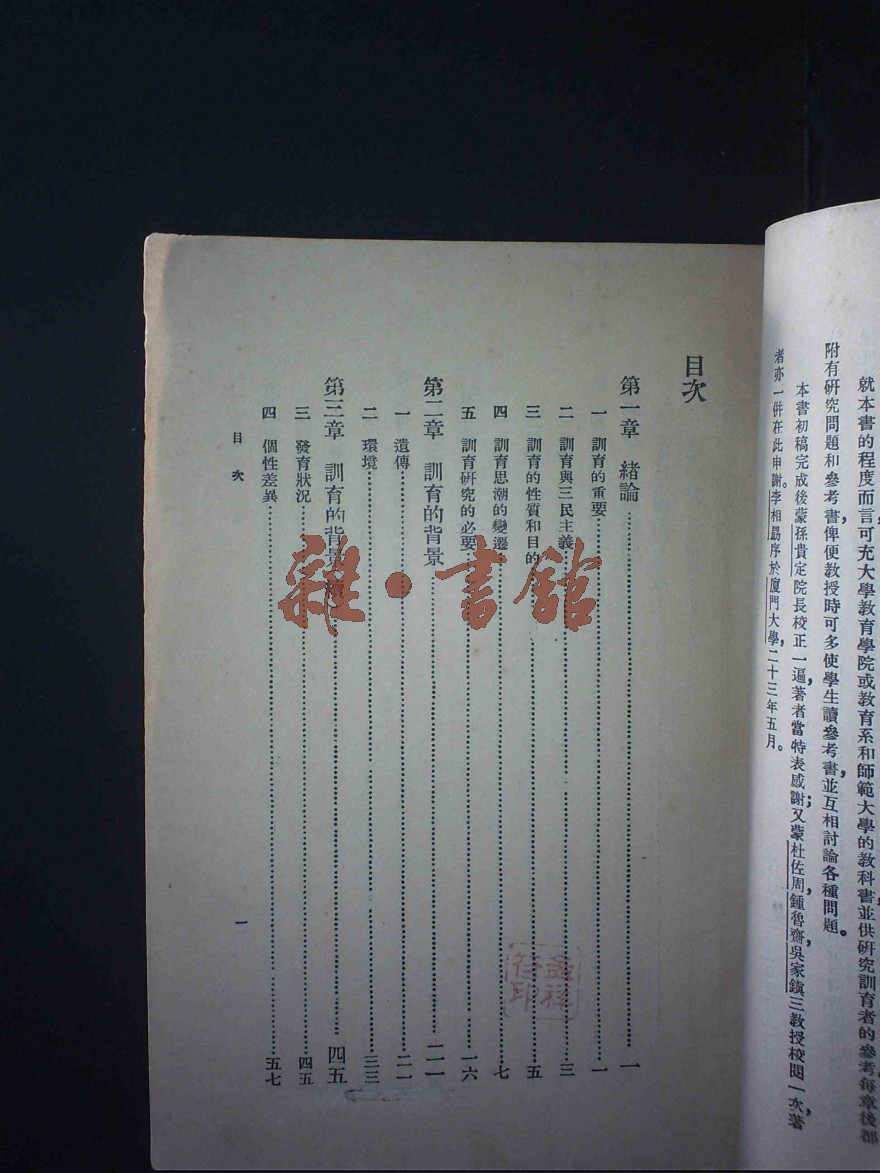 就本書的程度而言,可充大學教育學院或教育系和師範大學的教科書並供研究訓育者的參考,每章後都
附有研究問題和參考書,俾便教授時可多使學生讀參考書並互相討論各種問題。
本書初稿完成後蒙孫貴定院長校正一遍,著者當特表感謝;又蒙杜佐周,鍾魯齋,吳家鎮三教授校閱一次,著
者亦一併在此申謝。李相勗序於廈門大學,二十三年五月。
目次
第一章 緒論 一
一 訓育的重要 一
二 訓育與三民主義 三
三 訓育的性質和目的 五
四 訓育思潮的變遷 七
五 訓育研究的必要 一六
第二章 訓育的背景 二一
一 遺傳 二一
二 環境 三三
第三章 訓育的背景(續) 四五
三 發育狀況 四五
四 個性差異 五七
目次
一
雜·書館